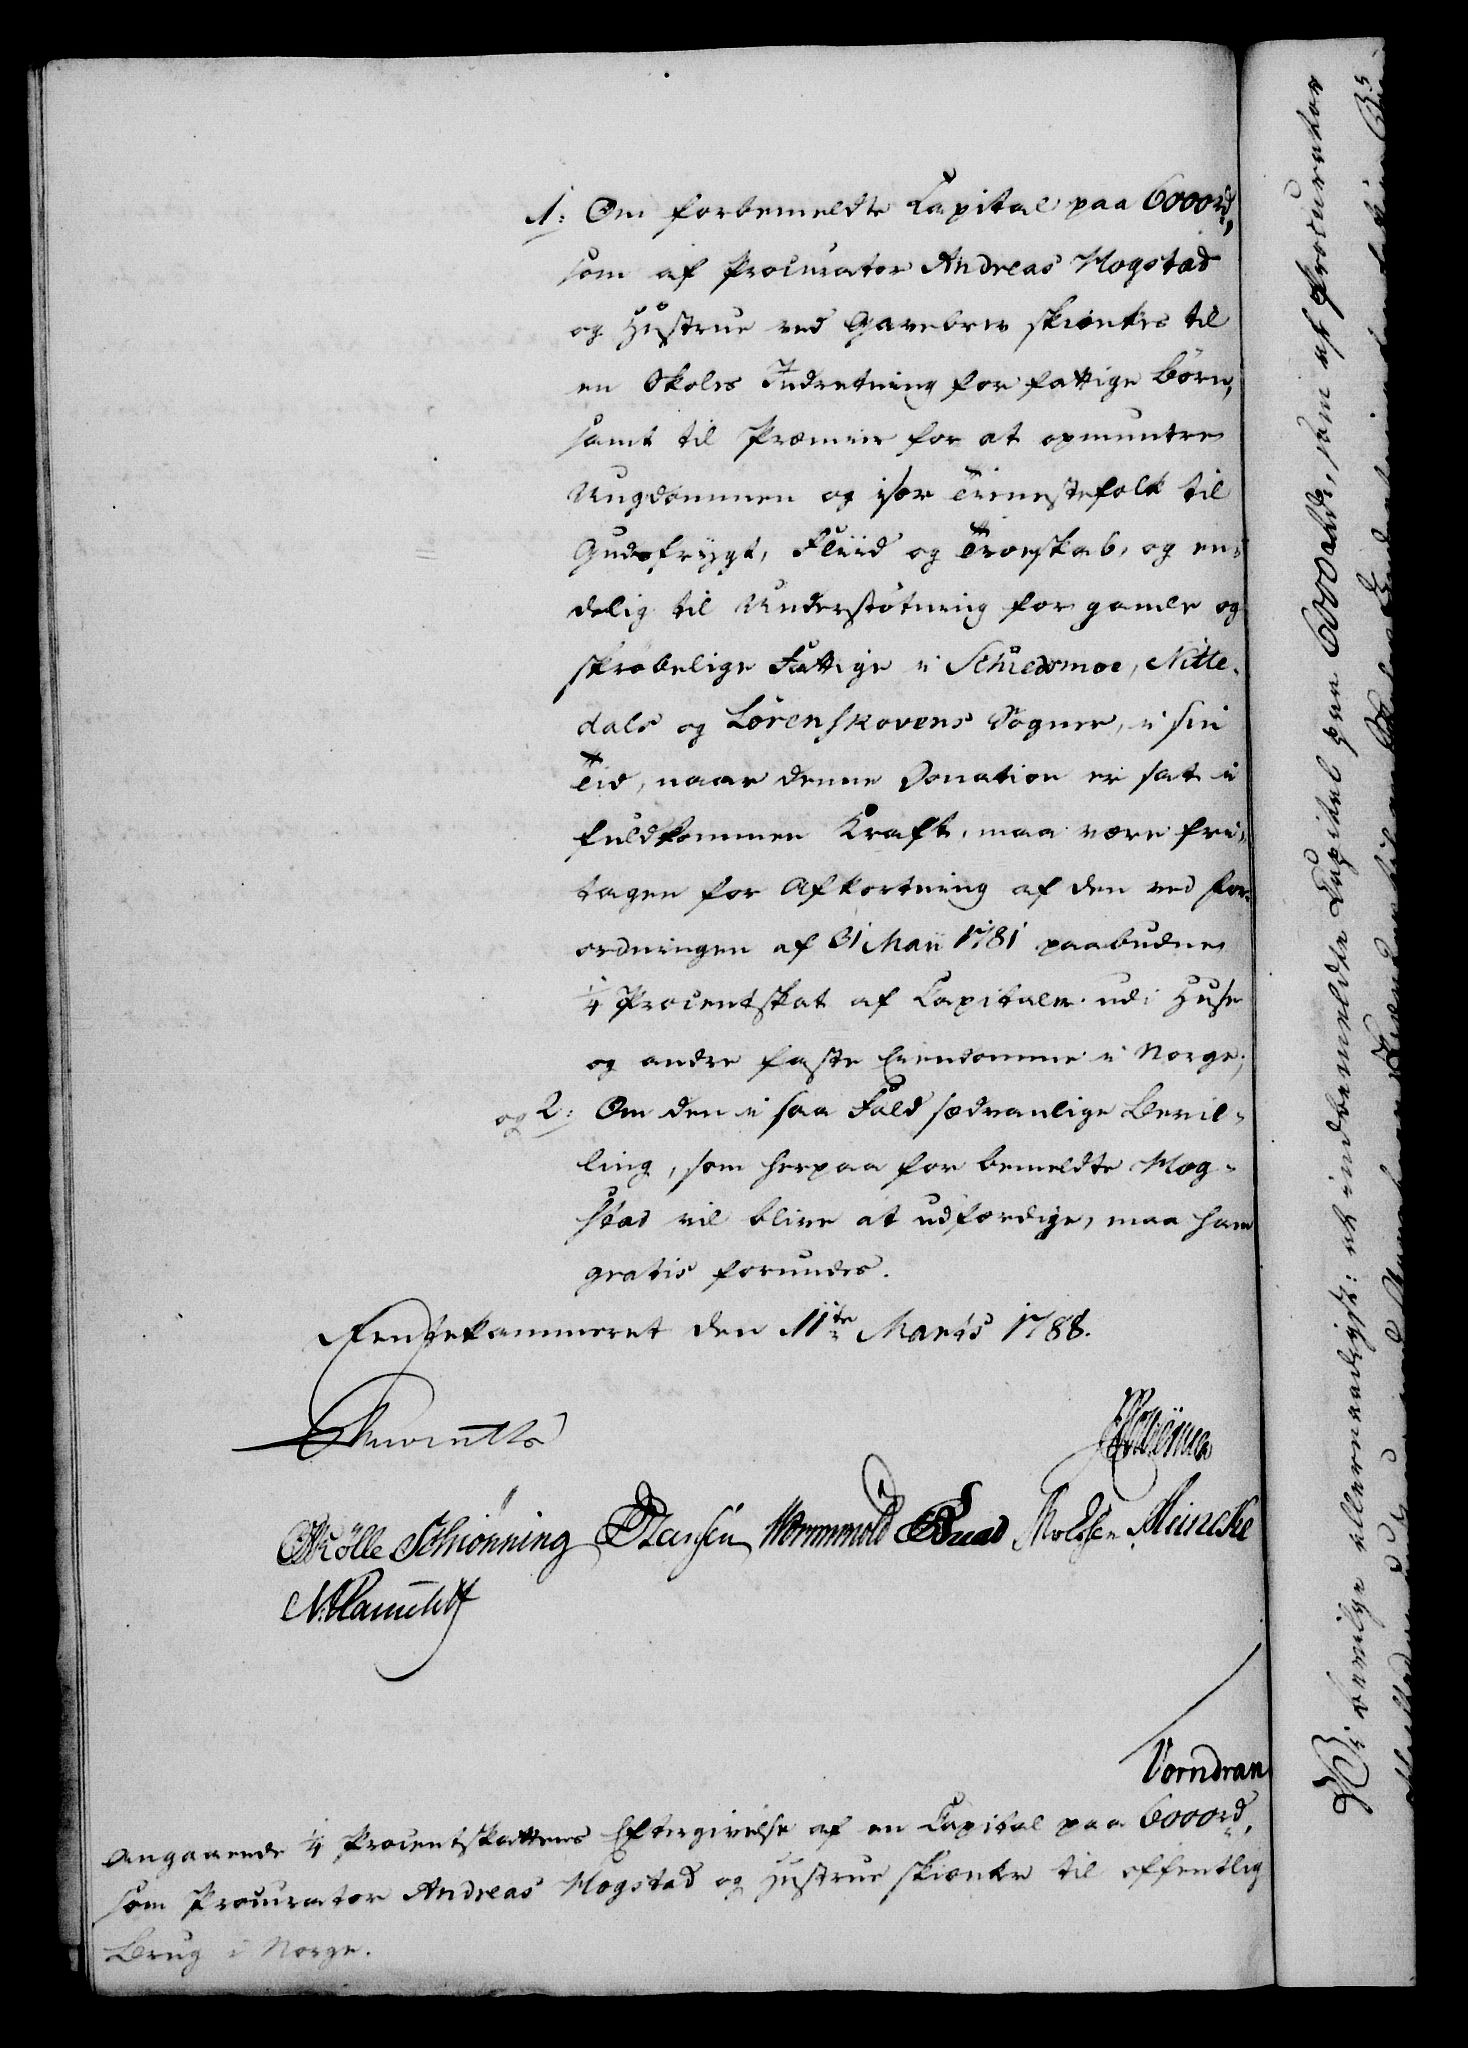 1: Om forbemeldte Capital paa 6000rd,
som af Procurator Andreas Mogstad
og Hustrue ved Gavebrev skienkes til
en Skoles Indretning for fattige Börn,
samt til Præmier for at opmuntre
Ungdommen og især Tienestefolk til
Gudsfrygt, Fliid og Troeskab, og en-
delig til Understötning for gamle og
skröbelige Fattige i Schiedsmoe, Nitte-
dals og Lörenskovens Sogner, i sin
Tid, naar denne Donation er sat i
fuldkommen Kraft, maa være fri-
tagen for Afkortning af den ved For-
ordningen af 31 Maii 1781 paabudne
1/4 Procentskat af Capitaler udi Huse
og andre faste Eiendomme i Norge;
og 2: Om den i saa Fald sædvanlige Bevil-
ling, som herpaa for bemeldte Mog-
stad vil blive at udfærdige, maa ham
gratis forundes.
Rentekammeret den 11te Marts 1788.
Schiönning Hansen Wormwold Meincke
Vorndran
Angaaende 1/4 Procentskattens Eftergivelse af en Capital paa 6000rd,
som Procurator Andreas Mogstad og Hustrue skienke til offentlig
Brug i Norge.
Vi bevilge allernaadigst: at indbemeldte Capital paa 6000rdr, som af Procurator